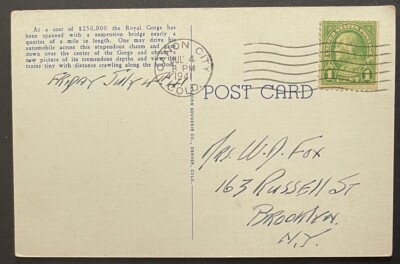 At a cost of $250,000 the Royal Gorge has
been spanned with a suspension bridge nearly a
quarter of a mile in length. One may drive
automobile across this stupendous chasm and
down over the center of the Gorge and
new picture of its tremendous depths and
trains tiny with distance crawling along the
CANON CITY
JUL 4
PM
1941
COLO.
Friday July 4th
POST CARD
SOUVENIR CO., DENVER, COLO.
1 1
Mrs. W. D. Fox
163 Russell St
Brooklyn.
N.Y.